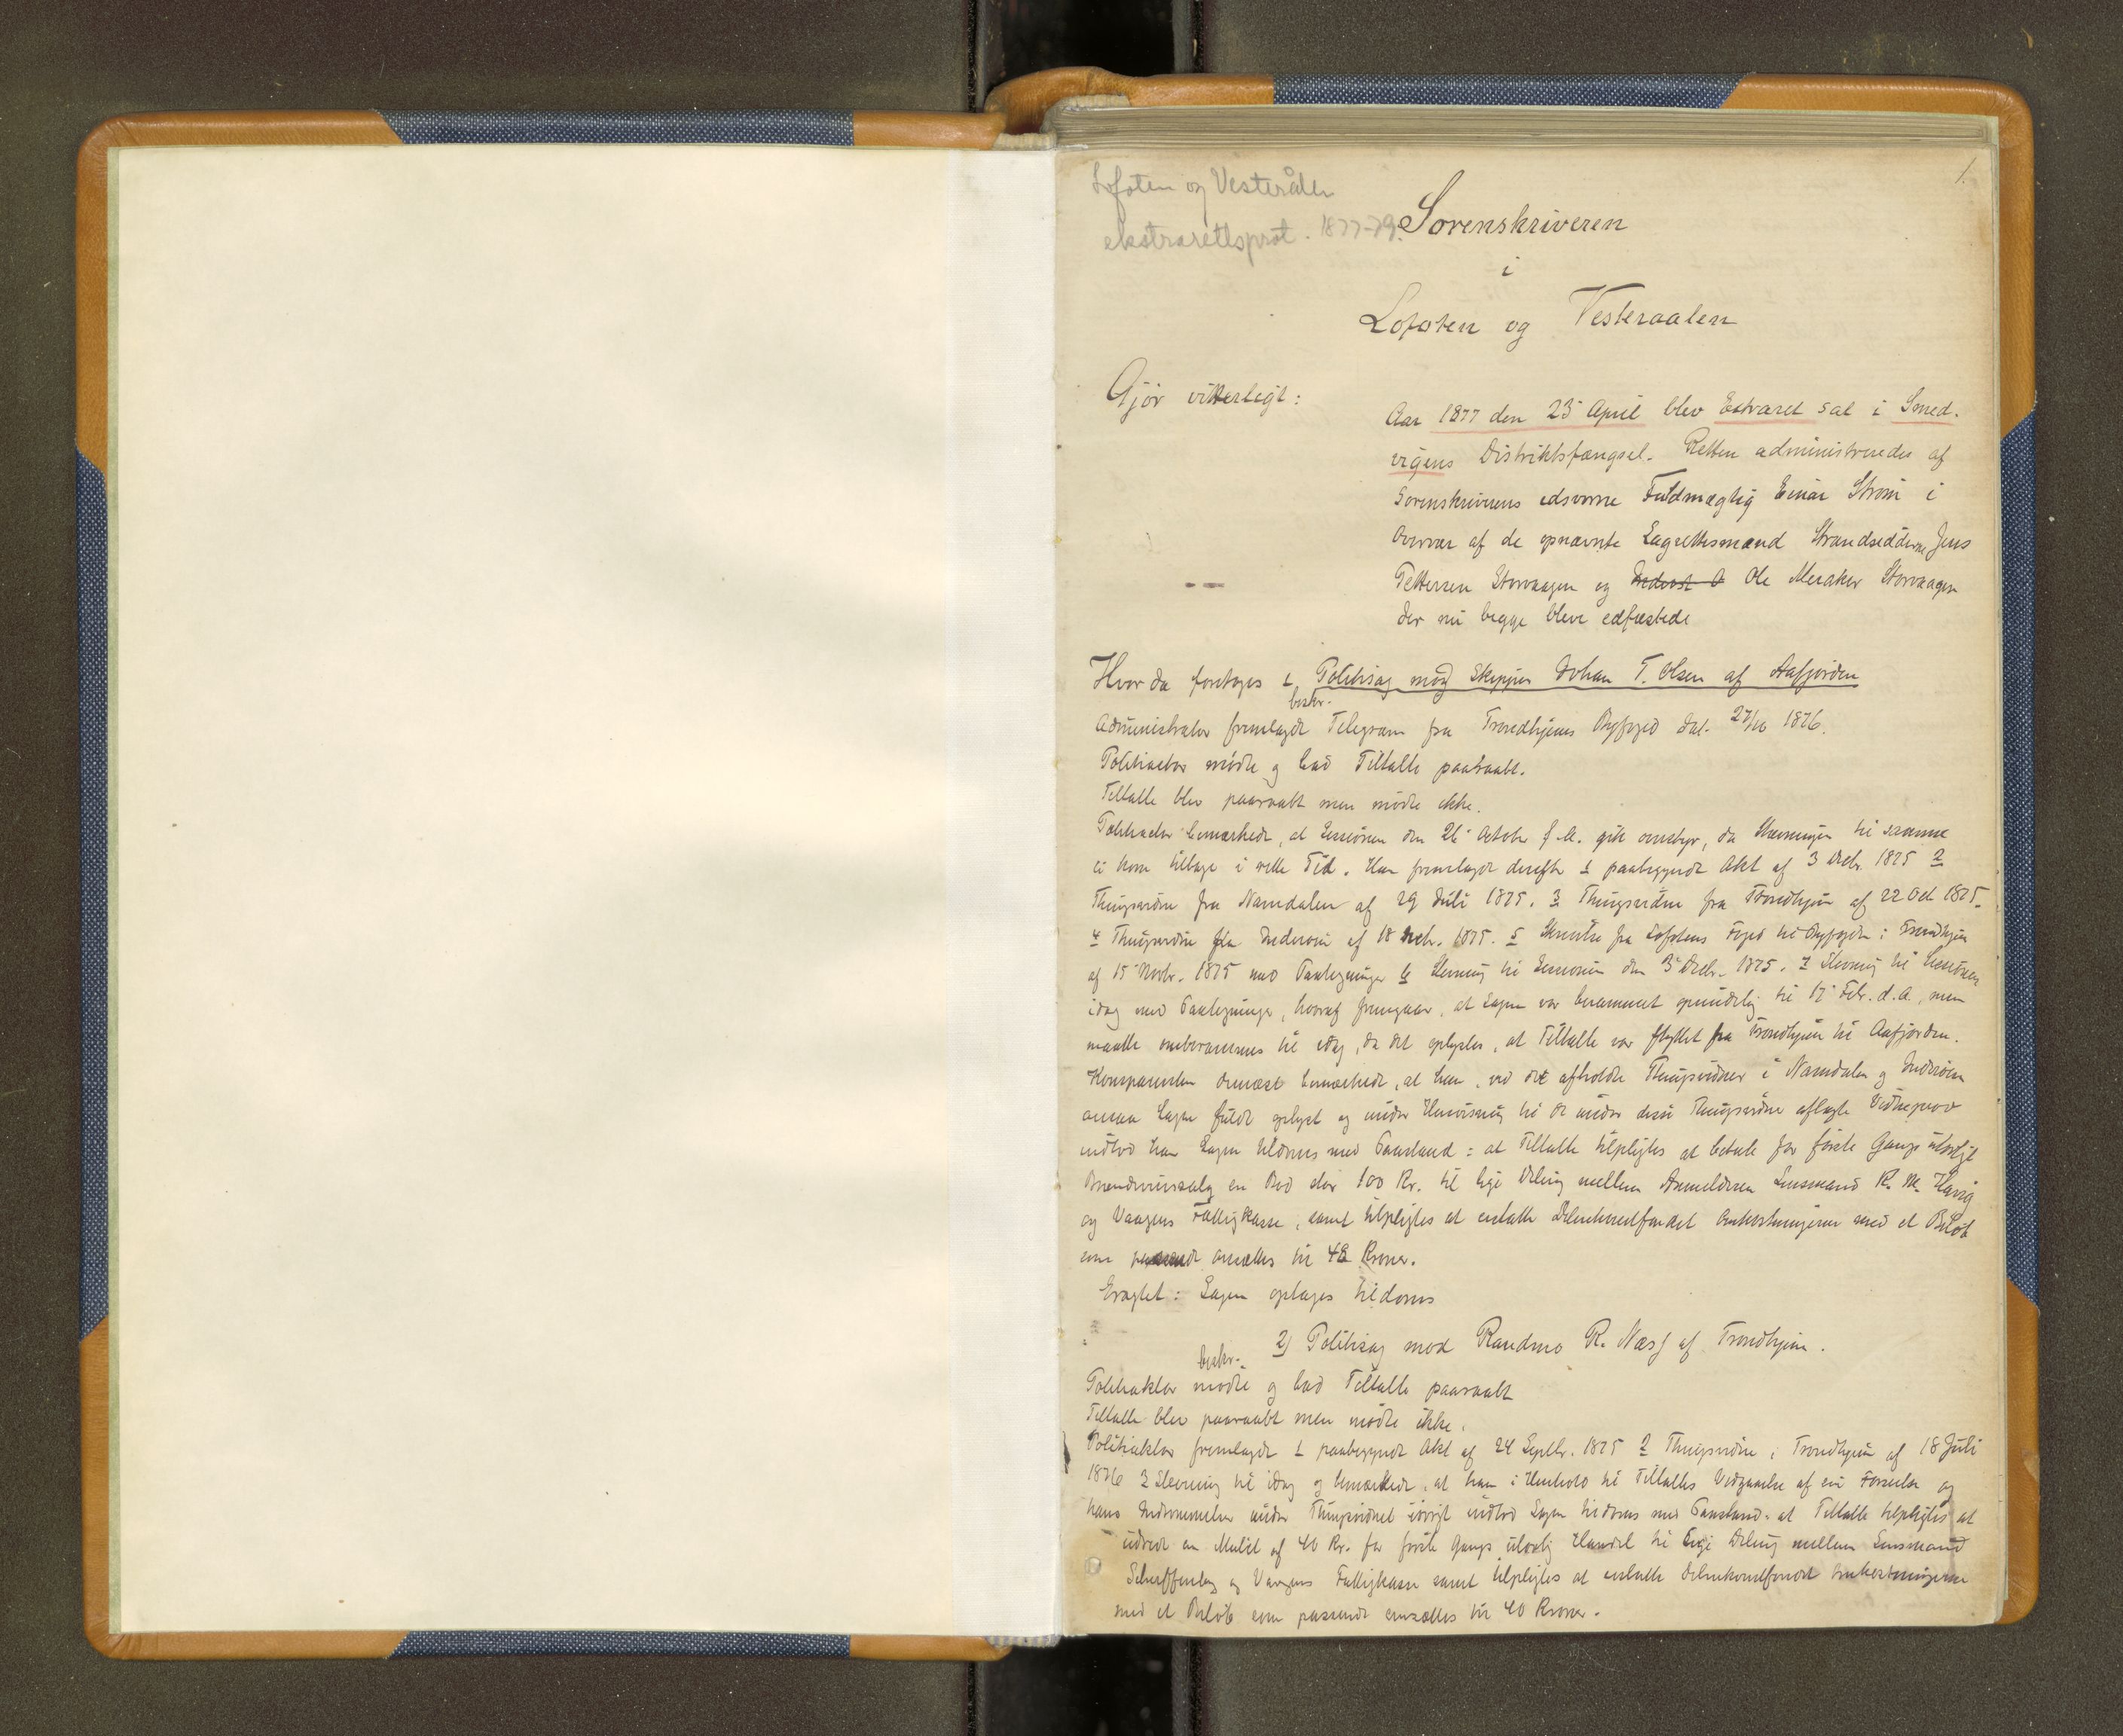 1.
Lofoten og Vesterålen
ekstrarettsprot. 1877-79.
Sorenskriveren
i
Lofoten og Vesteraalen
Gjør vitterligt:
Aar 1877 den 23 April blev Extraret sat i Smed-
vigens Distriktsfængsel. Retten administreredes af
Sorenskriverens edsvorne Fuldmægtig Einar Strøm i
Overvær af de opnævnte Lagrettesmænd Strandsidderne Jens
Pettersen Storvaagen og Ole Meraker Storvaagen
der nu begge bleve edfæstede
Hvor da foretoges 1, Politisag mod Skipper Johan T. Olsen af Aafjorden
beskr.
Administrator fremlagde Telegram fra Trondhjems Byfoged dat. 27/10 1876.
Politiaktor mødte og bad Tiltalte paaraabt.
Tiltalte blev paaraabt men mødte ikke.
Politiaktor bemærkede, at Sessionen den 26 Octobr f. A. gik overstyr, da Stævningen til samme
ei kom tilbage i rette Tid. Han fremlagde derefter 1 paabegyndt Akt af 3 Decbr. 1875 2
Thingsvidne fra Namdalen af 29 Juli 1875. 3 Thingsvidne fra Trondhjem af 22 Oct 1875.
4 Thingsvidne fra Inderøen af 18 Decbr. 1875. 5 Skrivelse fra Lofotens Foged til Byfogden i Trondhjem
af 15 Novbr. 1875 med Paategninger 6 Stevning til Sessionen den 3 Decbr. 1875. 7 Stevning til Sessionen
idag med Paategninger, hvoraf fremgaar, at Sagen var berammet oprindelig til 17 Febr. d.A., men
maatte omberammes til idag, da det oplystes, at Tiltalte var flyttet fra Trondhjem til Aafjorden.
Komparenten dernæst bemærkede, at han, ved de afholdte Thingsvidner i Namdalen og Inderøen
ansaa Sagen fuldt oplyst og under Henvisning til de under disse Thingsvidne aflagte Vidneprov
indlod han Sagen tildoms med Paastand: at Tiltalte tilpligtes at betale for første Gangs ulovligt
Brændevinssalg en Bod stor 100 Kr. til lige Deling mellem Anmelderen Lensmand R. M. Havig
og Vaagens Fattigkasse, samt tilpligtes at erstatte Delinkventfondet Omkostningerne med et Beløb
som passende ansættes til 48 Kroner.
Eragtet: Sagen optages tildoms
2) Politisag mod Randmo R. Næss af Trondhjem.
beskr.
Politiaktor mødte og bad Tiltalte paaraabt
Tiltalte blev paaraabt men mødte ikke.
Politiaktor fremlagde 1 paabegyndt Akt af 24 Septbr. 1875 2 Thingsvidne i Trondhjem af 18 Juli
1876 3 Stevning til idag og bemærkede, at han i Henhold til Tiltaltes Vedgaaelse af sin Forseelse og
hans Indrømmelser under Thingsvidnet iøvrigt indlod Sagen tildoms med Paastand: at Tiltalte tilpligtes at
udrede en Mulkt af 40 Kr. for første Gangs ulovlig Handel til lige Deling mellem Lensmand
Scheffenberg og Vaagens Fattigkasse samt tilpligtes at erstatte Delinkventfondet Omkostningerne
med et Beløb som passende ansættes til 40 Kroner.